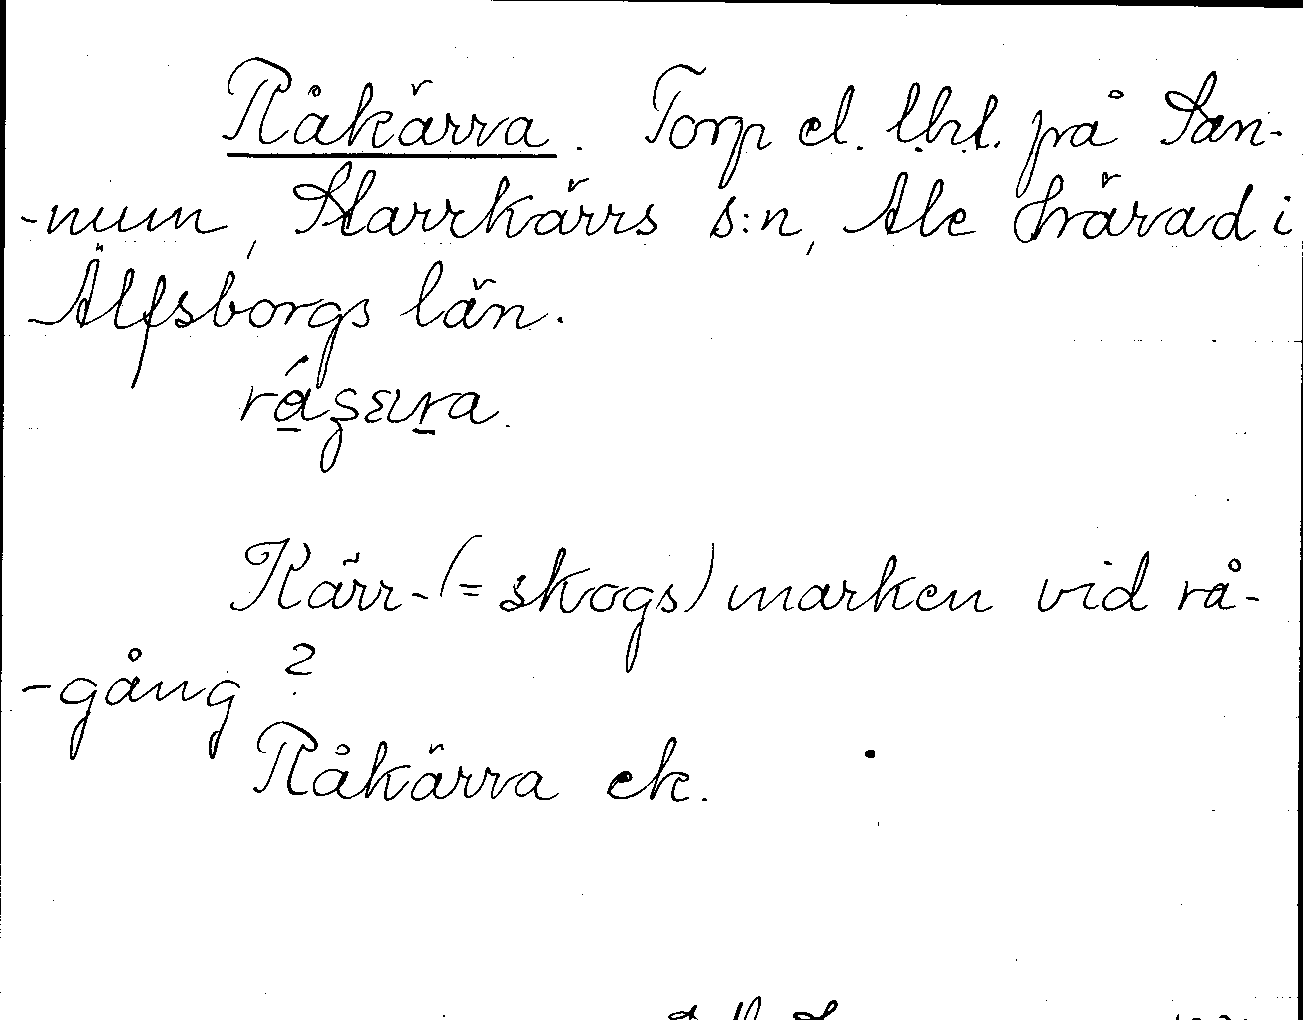 Råkärra. Torp el. lht. på San-
-num, Starrkärrs s:n, Ale härad i
Älfsborgs län.
Kärr-(= skogs) marken vid rå-
-gång?
Råkärra ek.